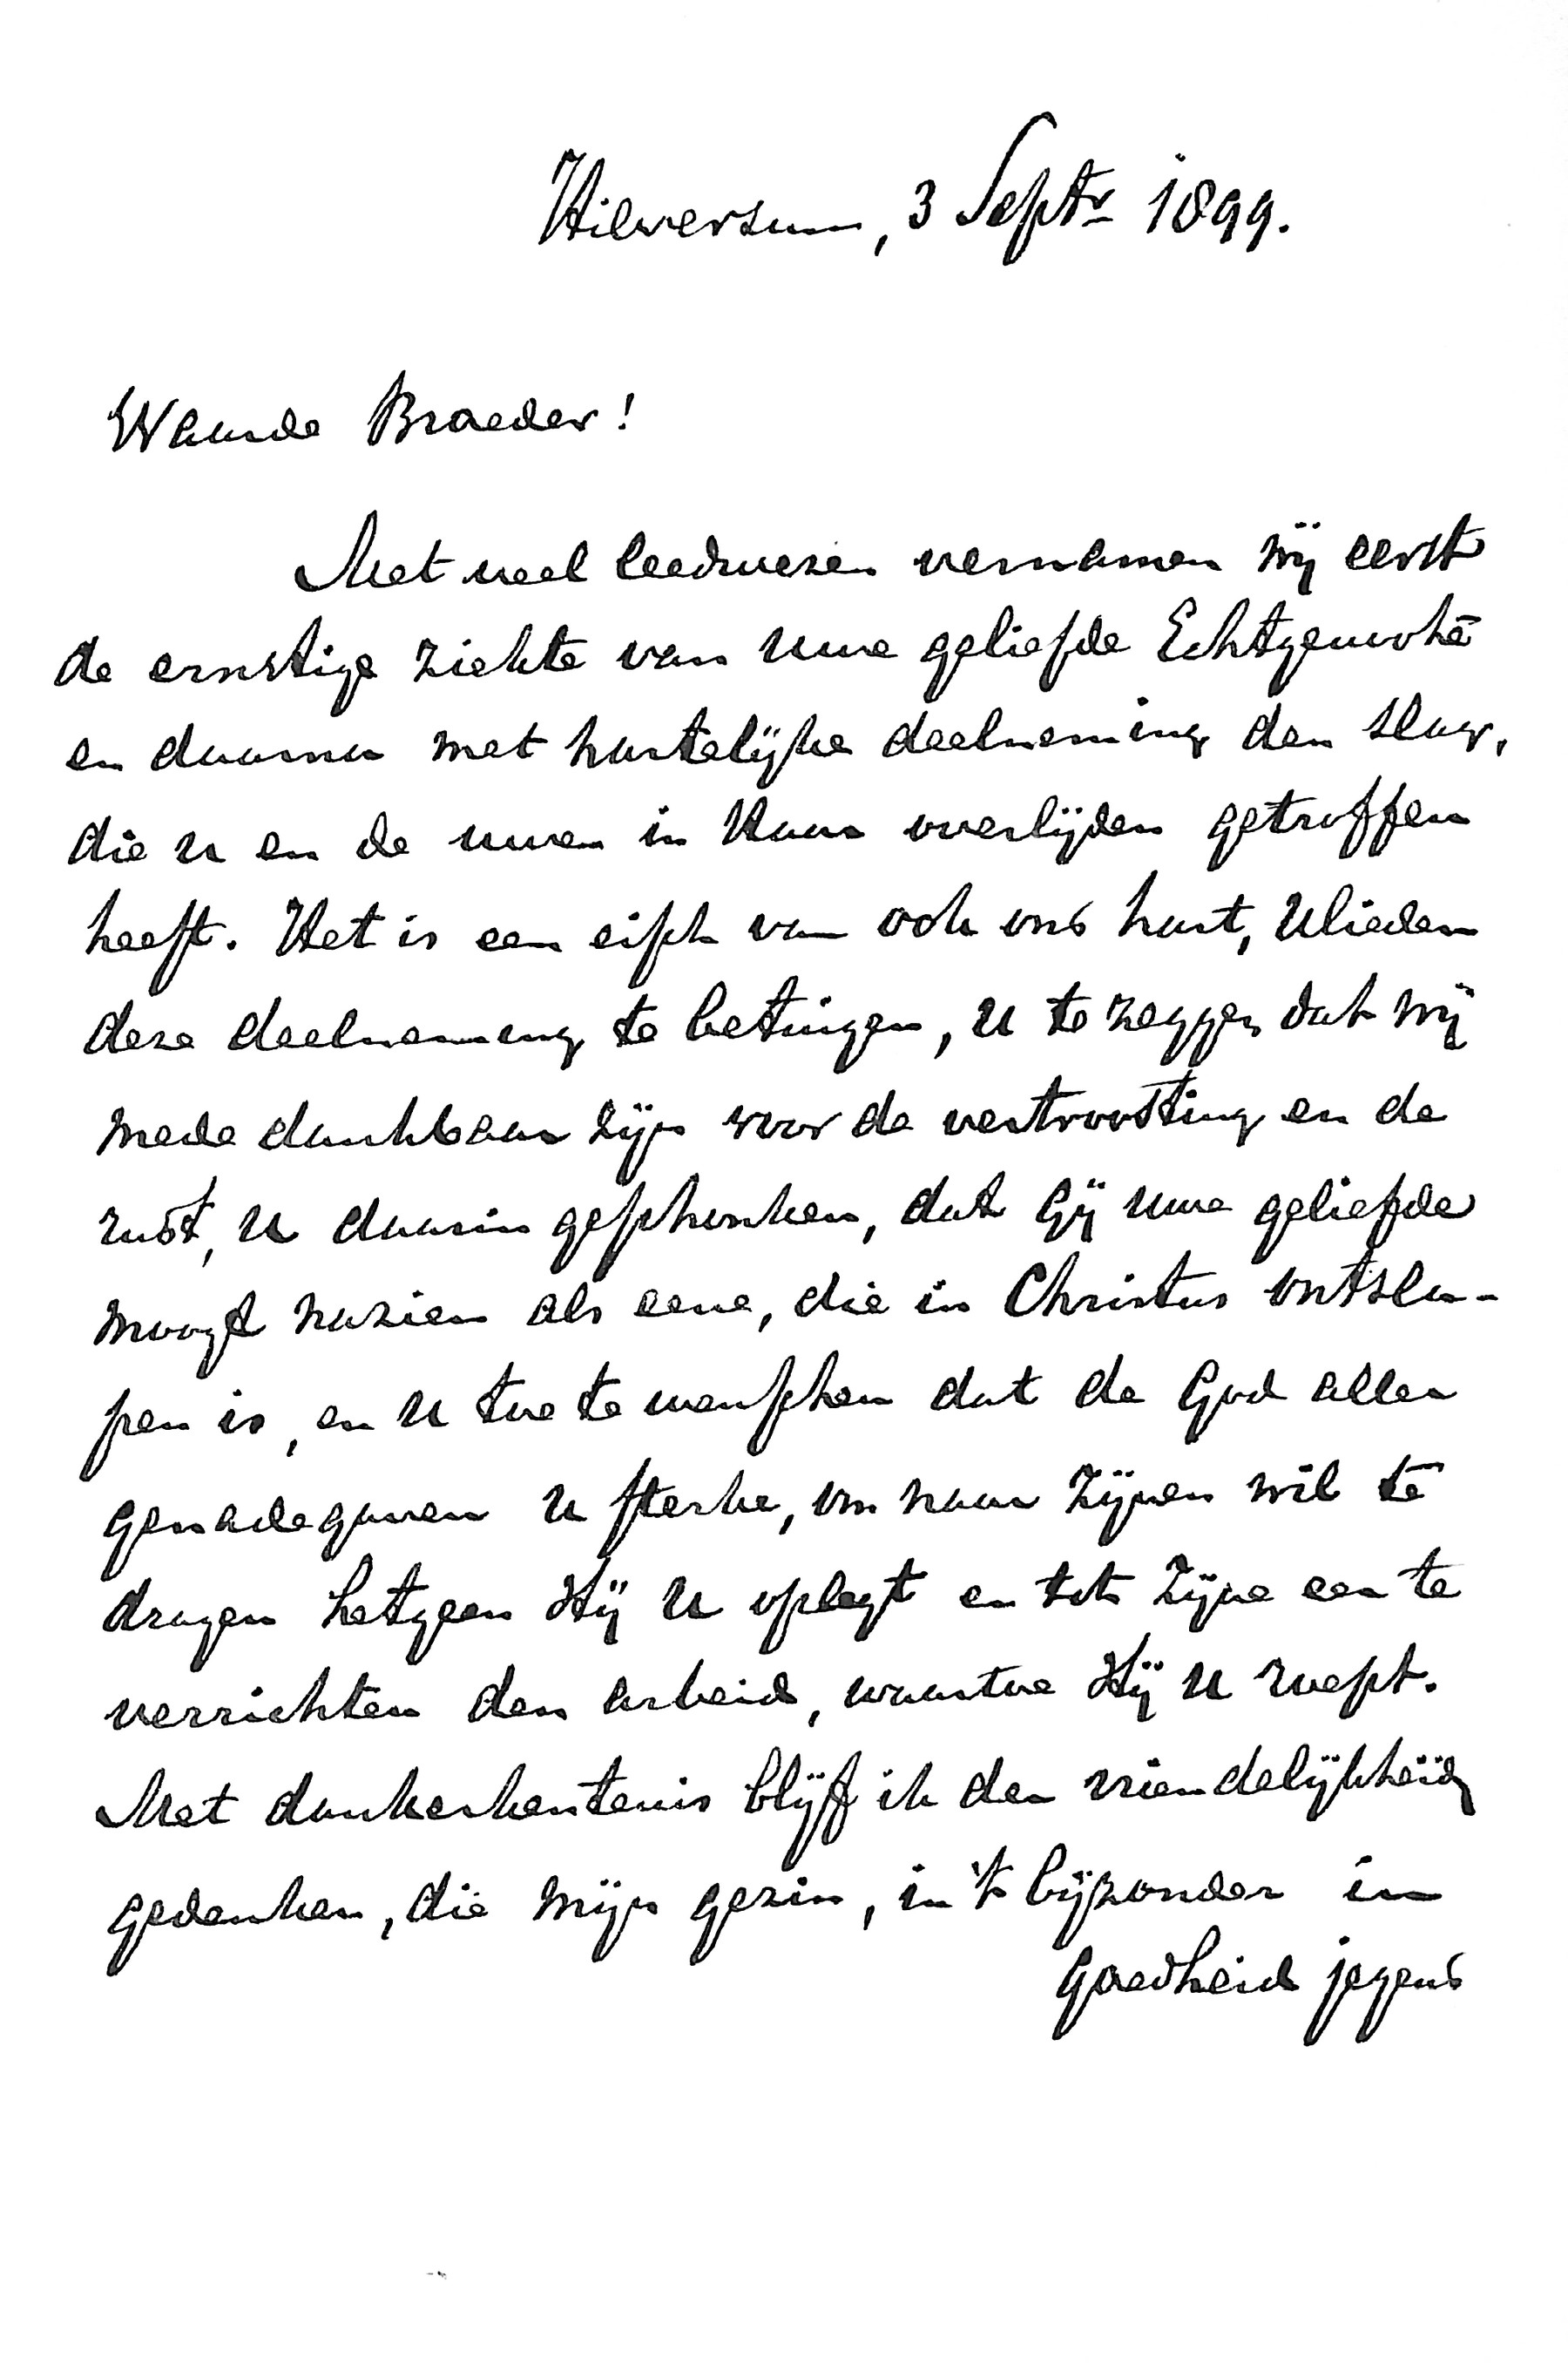 Hilversum, 3 Septr 1899.
Waarde Broeder!
Met veel leedwezen vernamen wij eerst
de ernstige ziekte van uwe geliefde Echtgenoote
en daarna met hartelijke deelneming den slag,
die u en de uwen in Haar overlijden getroffen
heeft. Het is een eisch van ook ons hart, Ulieden
deze deelneming te betuigen, u te zeggen dat wij
mede dankbaar zijn voor de vertroosting en de
rust, u daarin geschonken, dat Gij uwe geliefde
moogt nazien als eene, die in Christus ontsla-
pen is, en u toe te wenschen dat de God aller
genadegaven u sterke, om naar Zijnen wil te
dragen hetgeen Hij u oplegt en tot Zijne eer te
verrichten den arbeid, waartoe Hij u roept.
Met dankerkentenis blijf ik der vriendelijkheid
gedenken, die mijn gezin, in 't bijzonder in
goedheid jegens